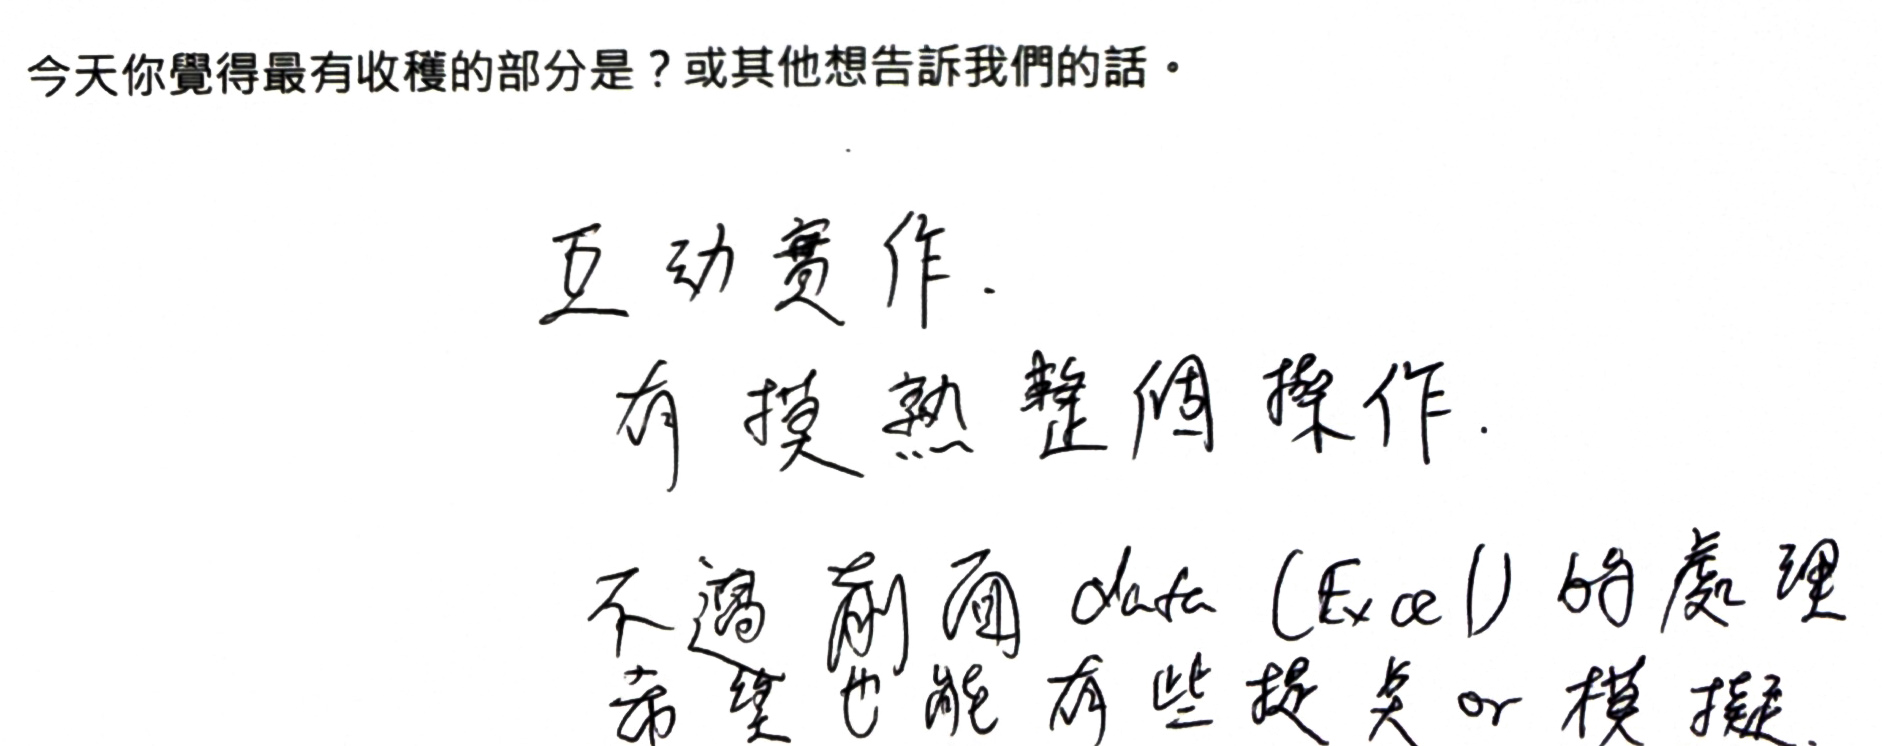 今天你覺得最有收穫的部分是？或其他想告訴我們的話。
互动實作.
有摸熟整個操作.
不過前面data (Excel) 的處理
希望也能有些提点or模擬.